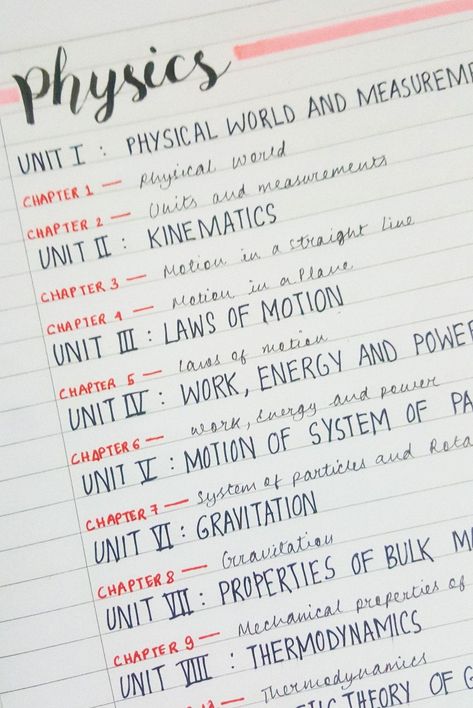 Physics
UNIT I : PHYSICAL WORLD AND MEASUREME
CHAPTER 1 — Physical World
CHAPTER 2 — Units and measurements
UNIT II : KINEMATICS
CHAPTER 3 — Motion in a straight Line
CHAPTER 4 — Motion in a Plane
UNIT III : LAWS OF MOTION
CHAPTER 5 — Laws of motion
UNIT IV : WORK, ENERGY AND POWER
CHAPTER 6 — Work, Energy and power
UNIT V : MOTION OF SYSTEM OF PA
CHAPTER 7 — System of particles and Rota
UNIT VI : GRAVITATION
CHAPTER 8 — Gravitation
UNIT VII : PROPERTIES OF BULK MA
CHAPTER 9 — Mechanical properties of
UNIT VIII : THERMODYNAMICS
— Thermodynamics
THEORY OF G